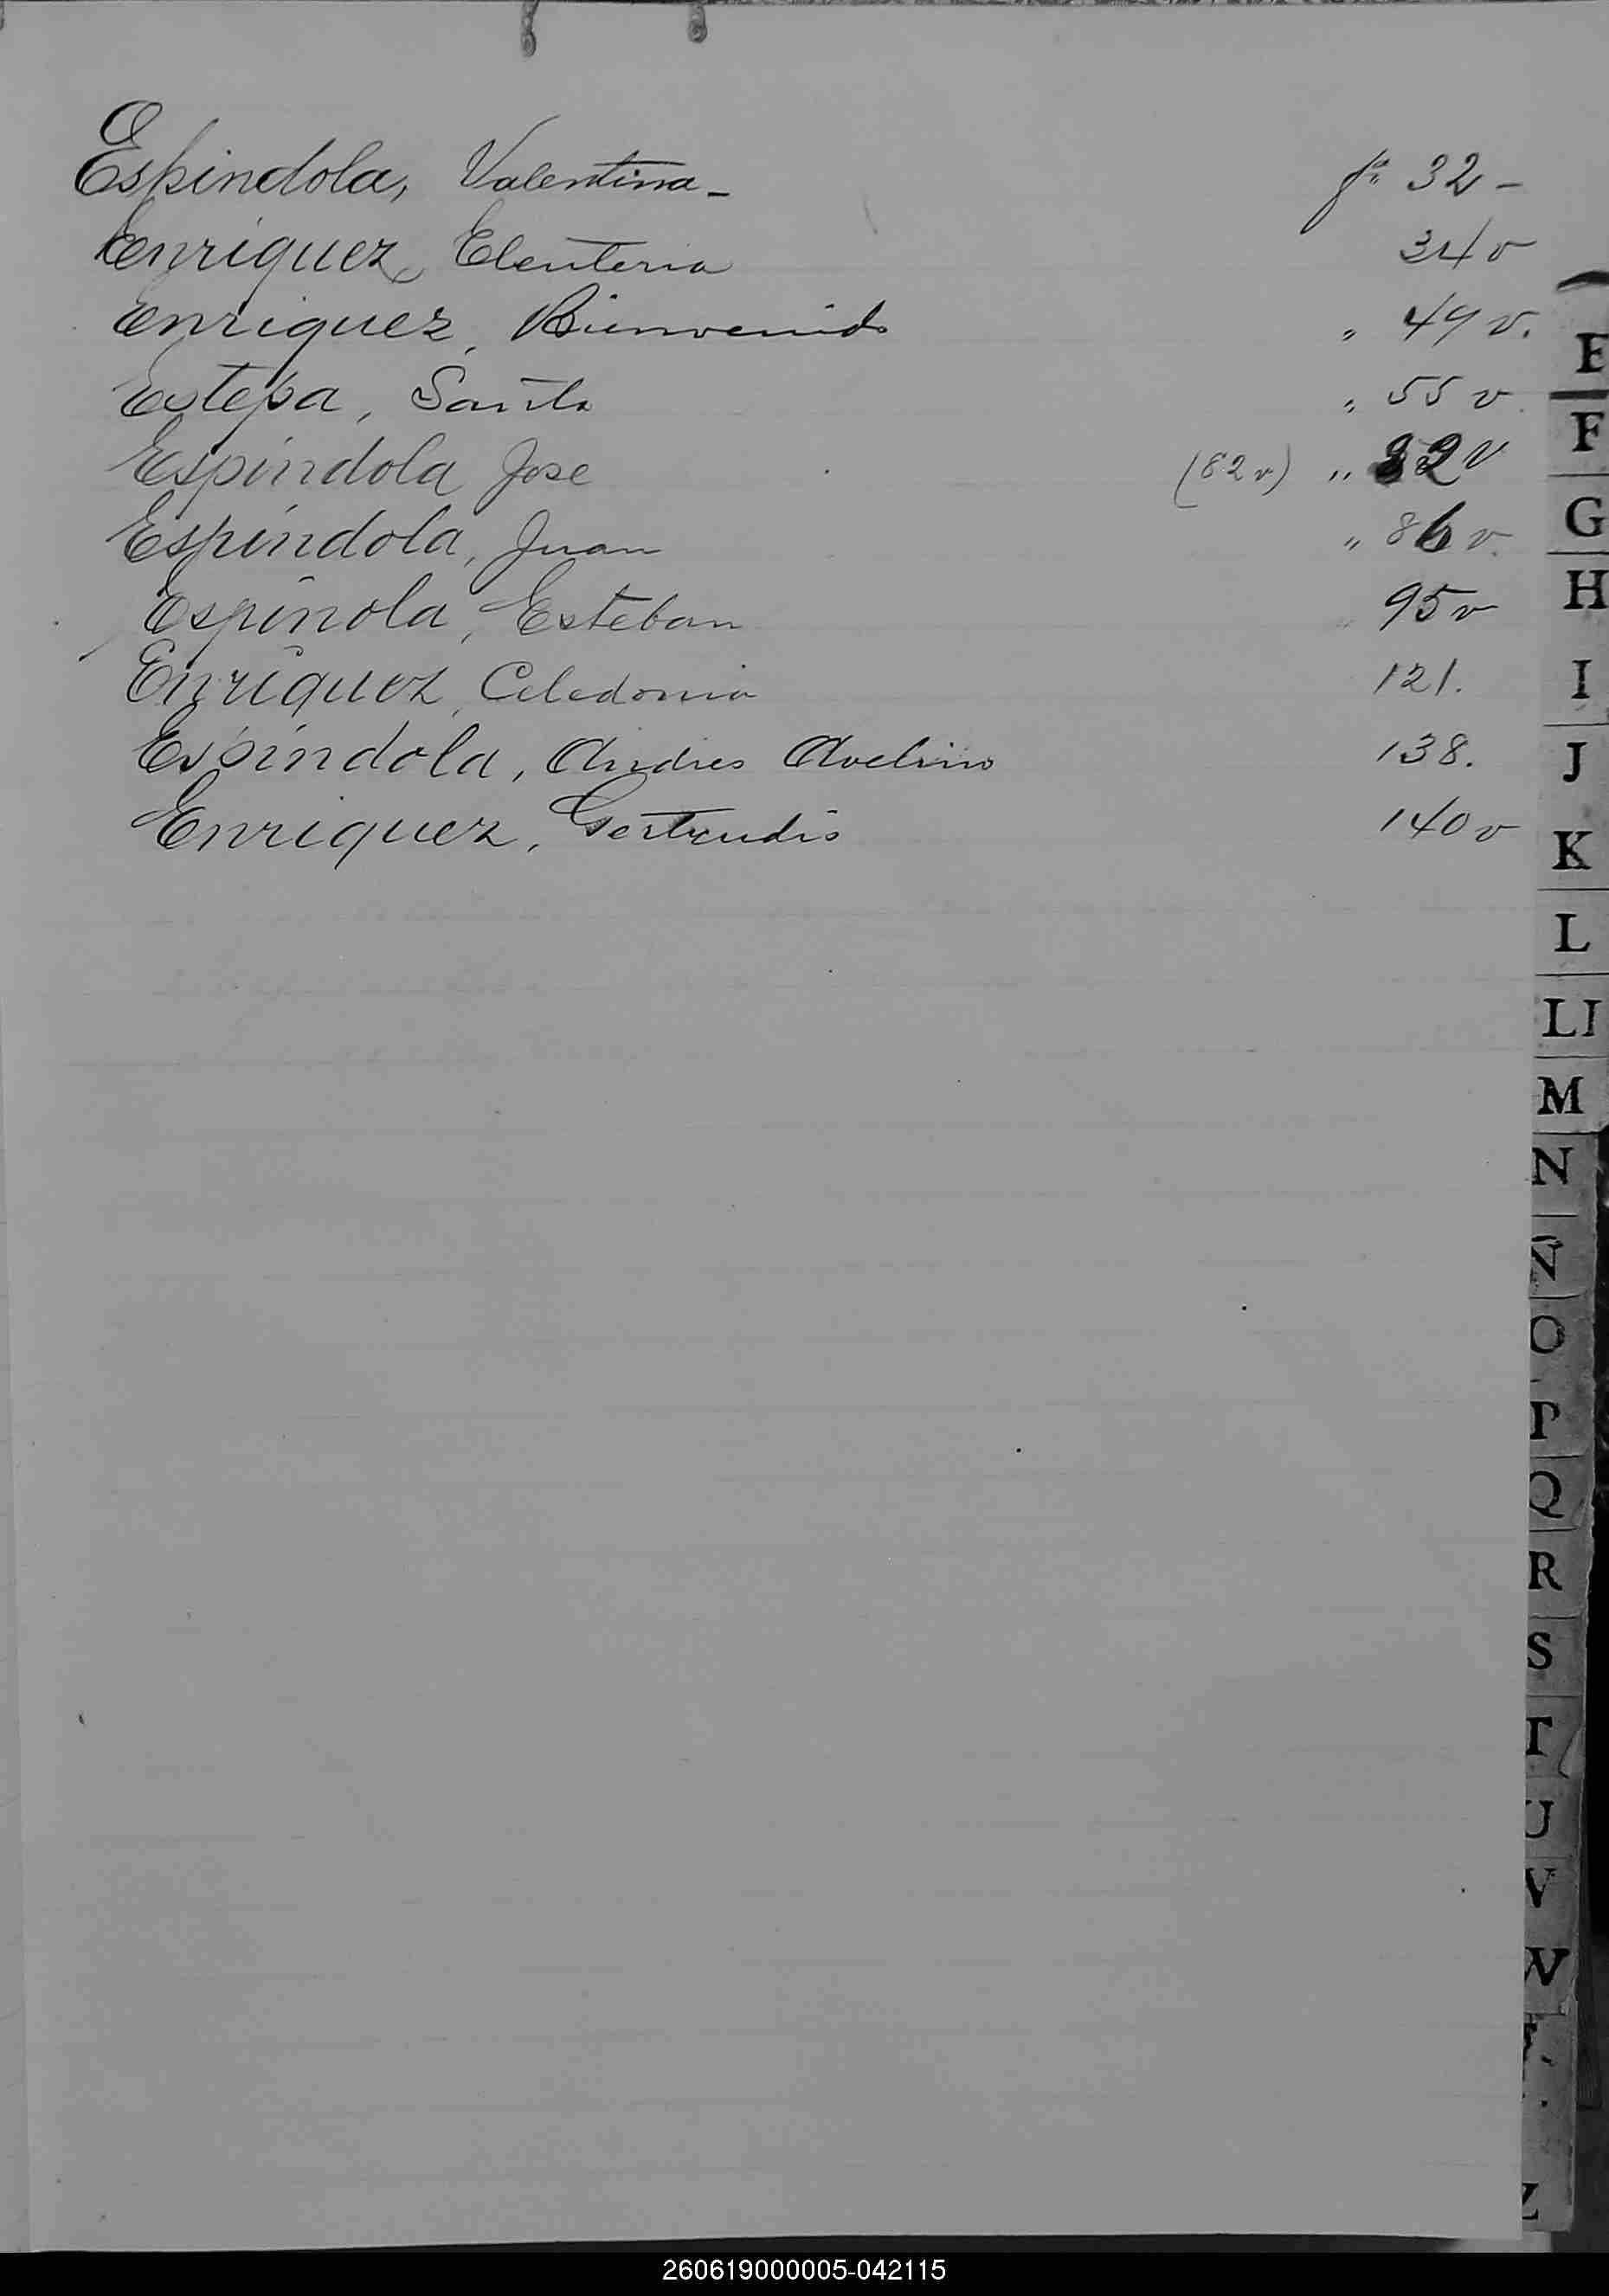 Espindola, Valentina - fº 32 -
Enriquez, Eleuteria 34v
Enriquez, Bienvenido " 49 v.
Estepa, Santa " 55 v.
Espindola Jose (82 v) " 82 v
Espindola, Juan " 86 v.
Espinola, Esteban 95 v
Enriquez, Celedonia 121.
Espindola, Andres Avelino 138.
Enriquez, Gertrudis 140 v
E
F
G
H
I
J
K
L
LI
M
N
Ñ
O
P
Q
R
S
T
U
V
W
Z
260619000005-042115